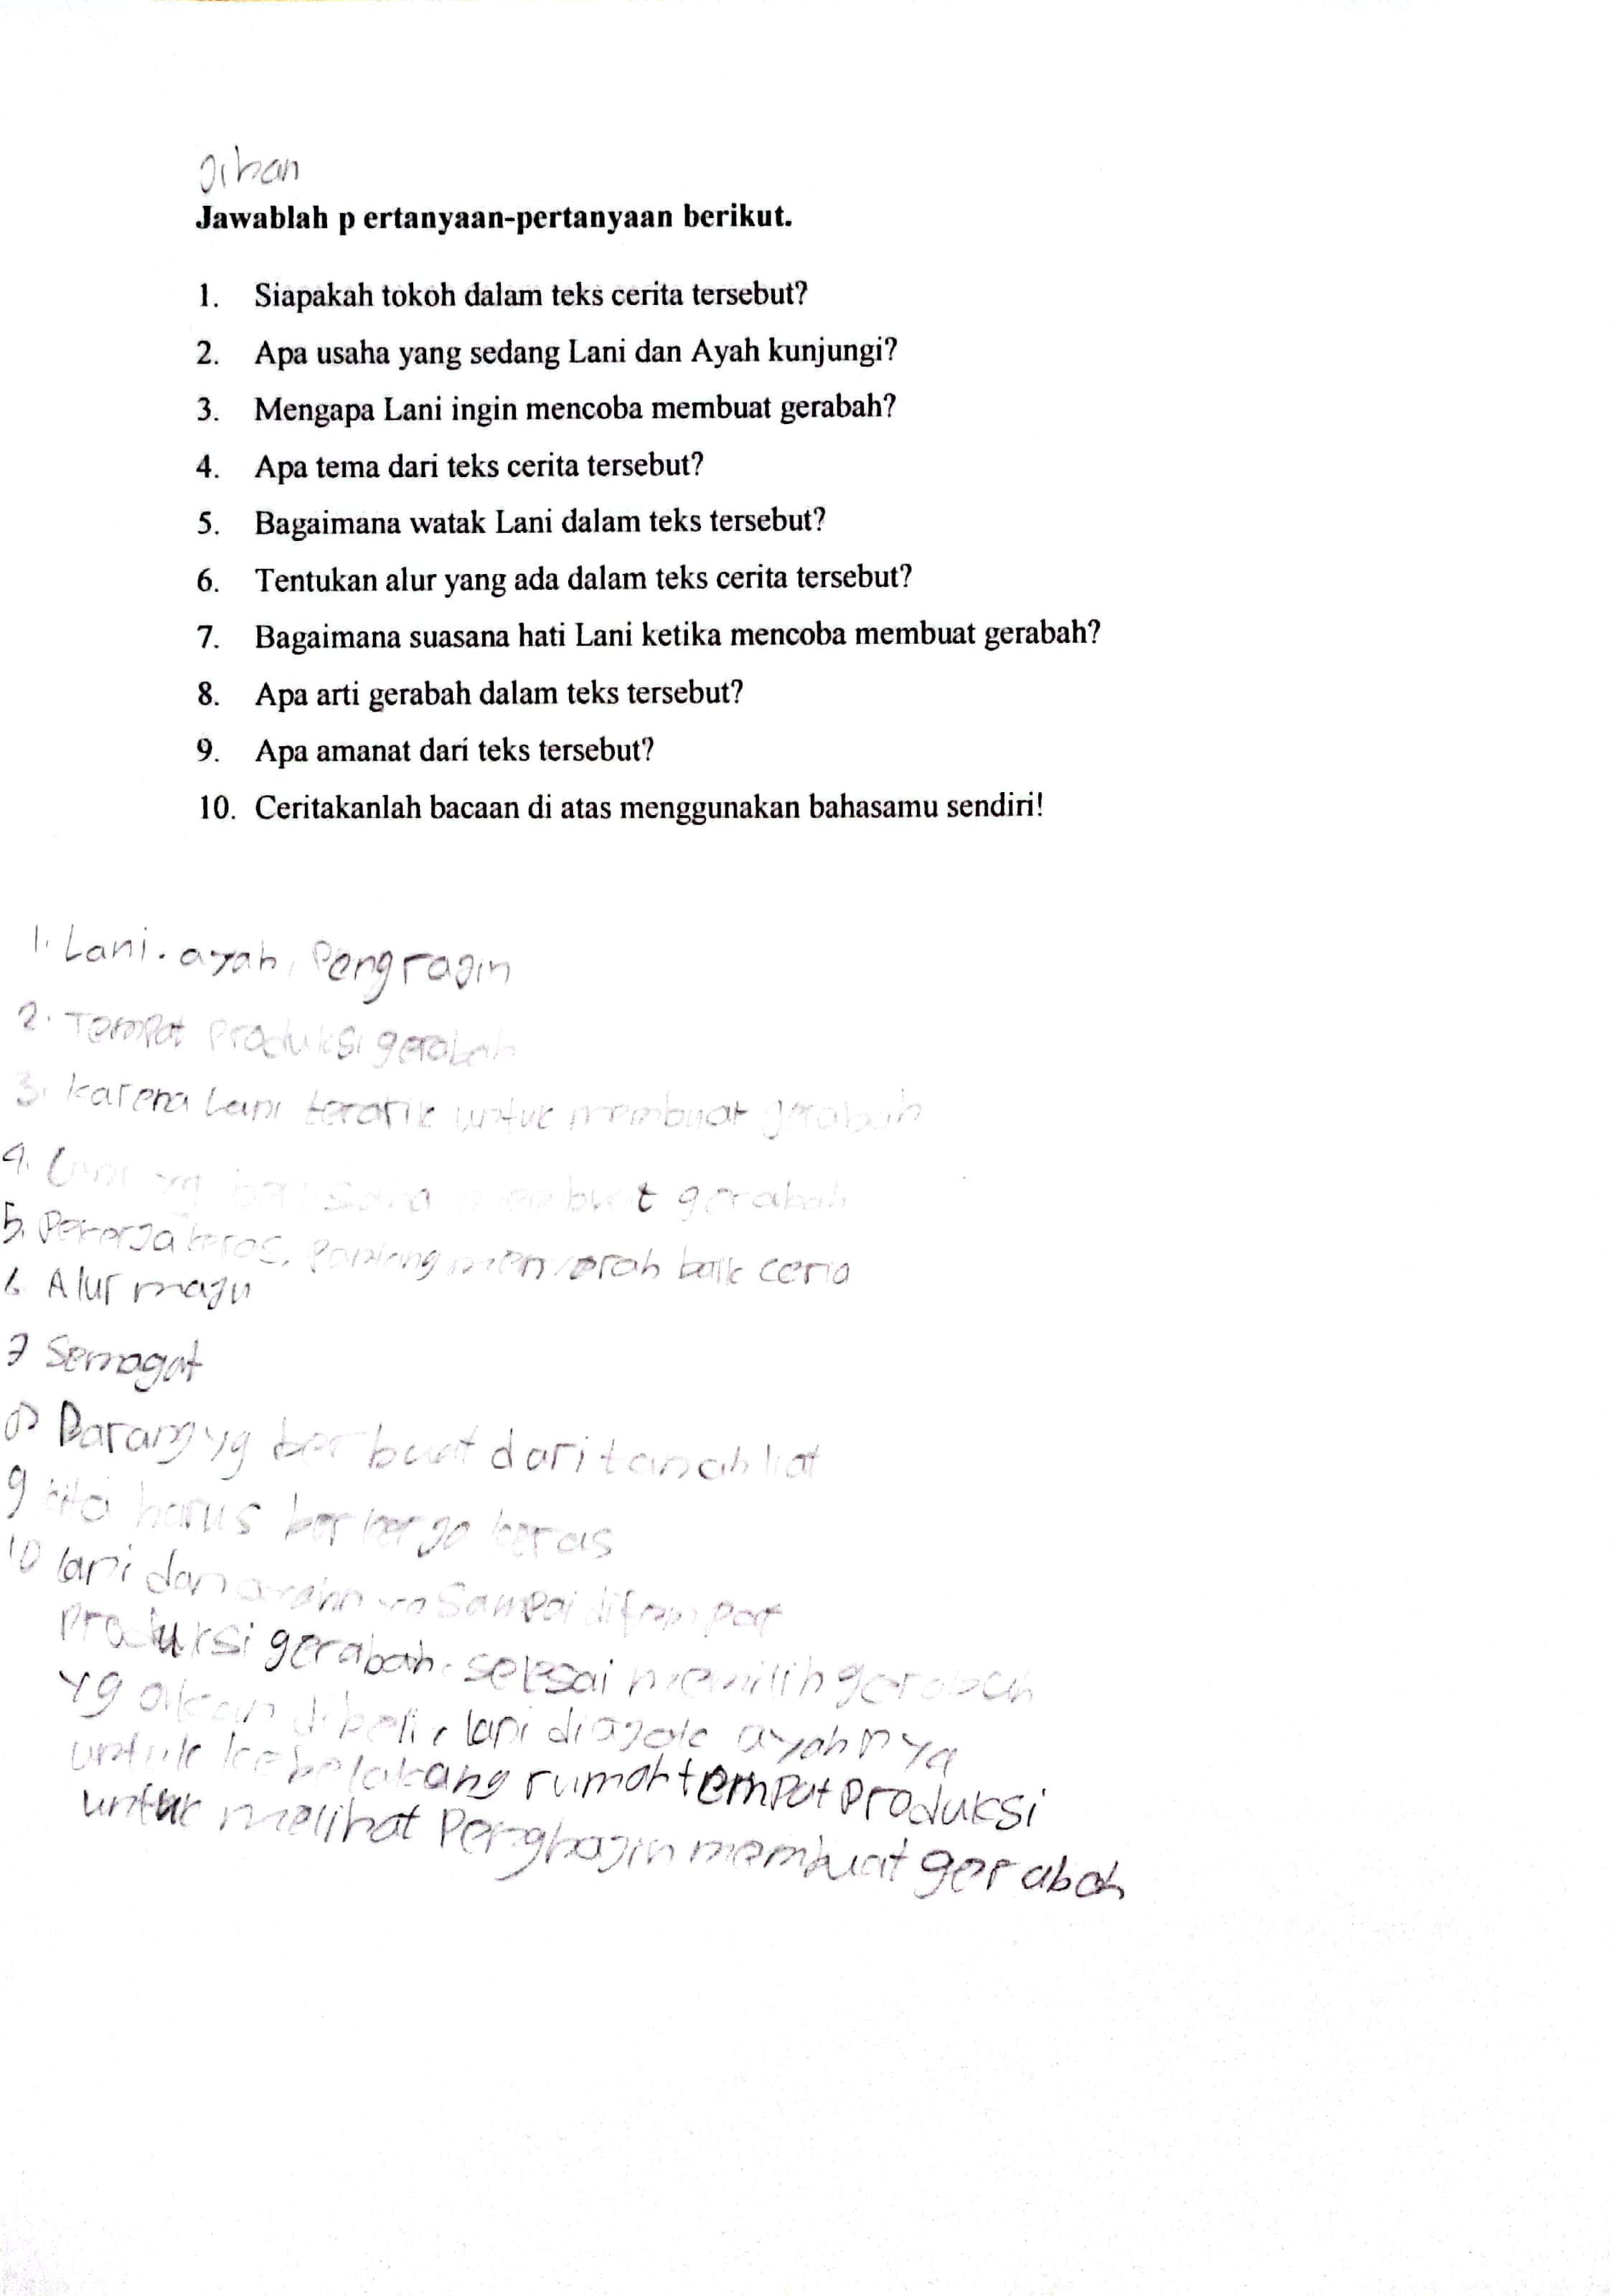 Jihan
Jawablah p ertanyaan-pertanyaan berikut.
1. Siapakah tokoh dalam teks cerita tersebut?
2. Apa usaha yang sedang Lani dan Ayah kunjungi?
3. Mengapa Lani ingin mencoba membuat gerabah?
4. Apa tema dari teks cerita tersebut?
5. Bagaimana watak Lani dalam teks tersebut?
6. Tentukan alur yang ada dalam teks cerita tersebut?
7. Bagaimana suasana hati Lani ketika mencoba membuat gerabah?
8. Apa arti gerabah dalam teks tersebut?
9. Apa amanat dari teks tersebut?
10. Ceritakanlah bacaan di atas menggunakan bahasamu sendiri!
1. Lani. ayah, Pengrajin
2. Tempat Produksi gerabah
3. karena Lani terarik untuk membuat gerabah
4. Lani yg gerabah
5. Pekerja keras, menyerah baik ceria
6 Alur maju
7 Semagat
8 Barang yg terbuat dari tanah liat
9 kita harus berkerja keras
10 lani dan ayahnya Sampai ditempat
Produksi gerabah. selesai memilih gerabah
yg akan dibeli, lani diajak ayahnya
untuk kebelakang rumah tempat Produksi
untuk melihat Penghajin membuat gerabah